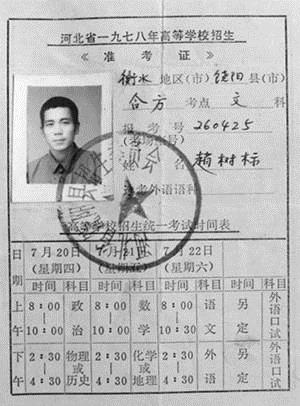 河北省一九七八年高等学校招生
《准考证》
衡水地区(市)饶阳县(市)
合方考点文科
报考号 260425
(考场座号)
姓名 赵树标
应考外语语科
高等学校招生统一考试时间表
日期 7月20日 (星期四) 7月21日 (星期五) 7月22日 (星期六)
时间 科目 时间 科目 时间 科目 外语口试
上午 8:00-10:00 政治 8:00-10:00 数学 8:00-10:00 语文 另定 外语口试
下午 2:30-4:30 物理或历史 2:30-4:30 化学或地理 2:30-4:30 外语 另定 外语口试